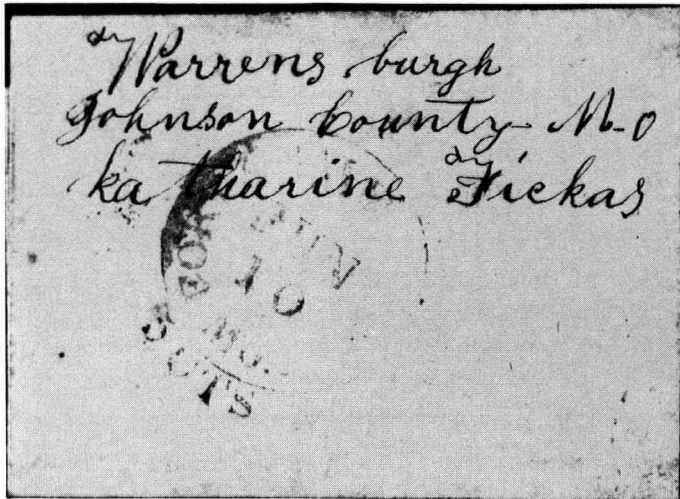 Warrens burgh
Johnson County M-o
ka tharine Fickas
10
MO.
5 CTS